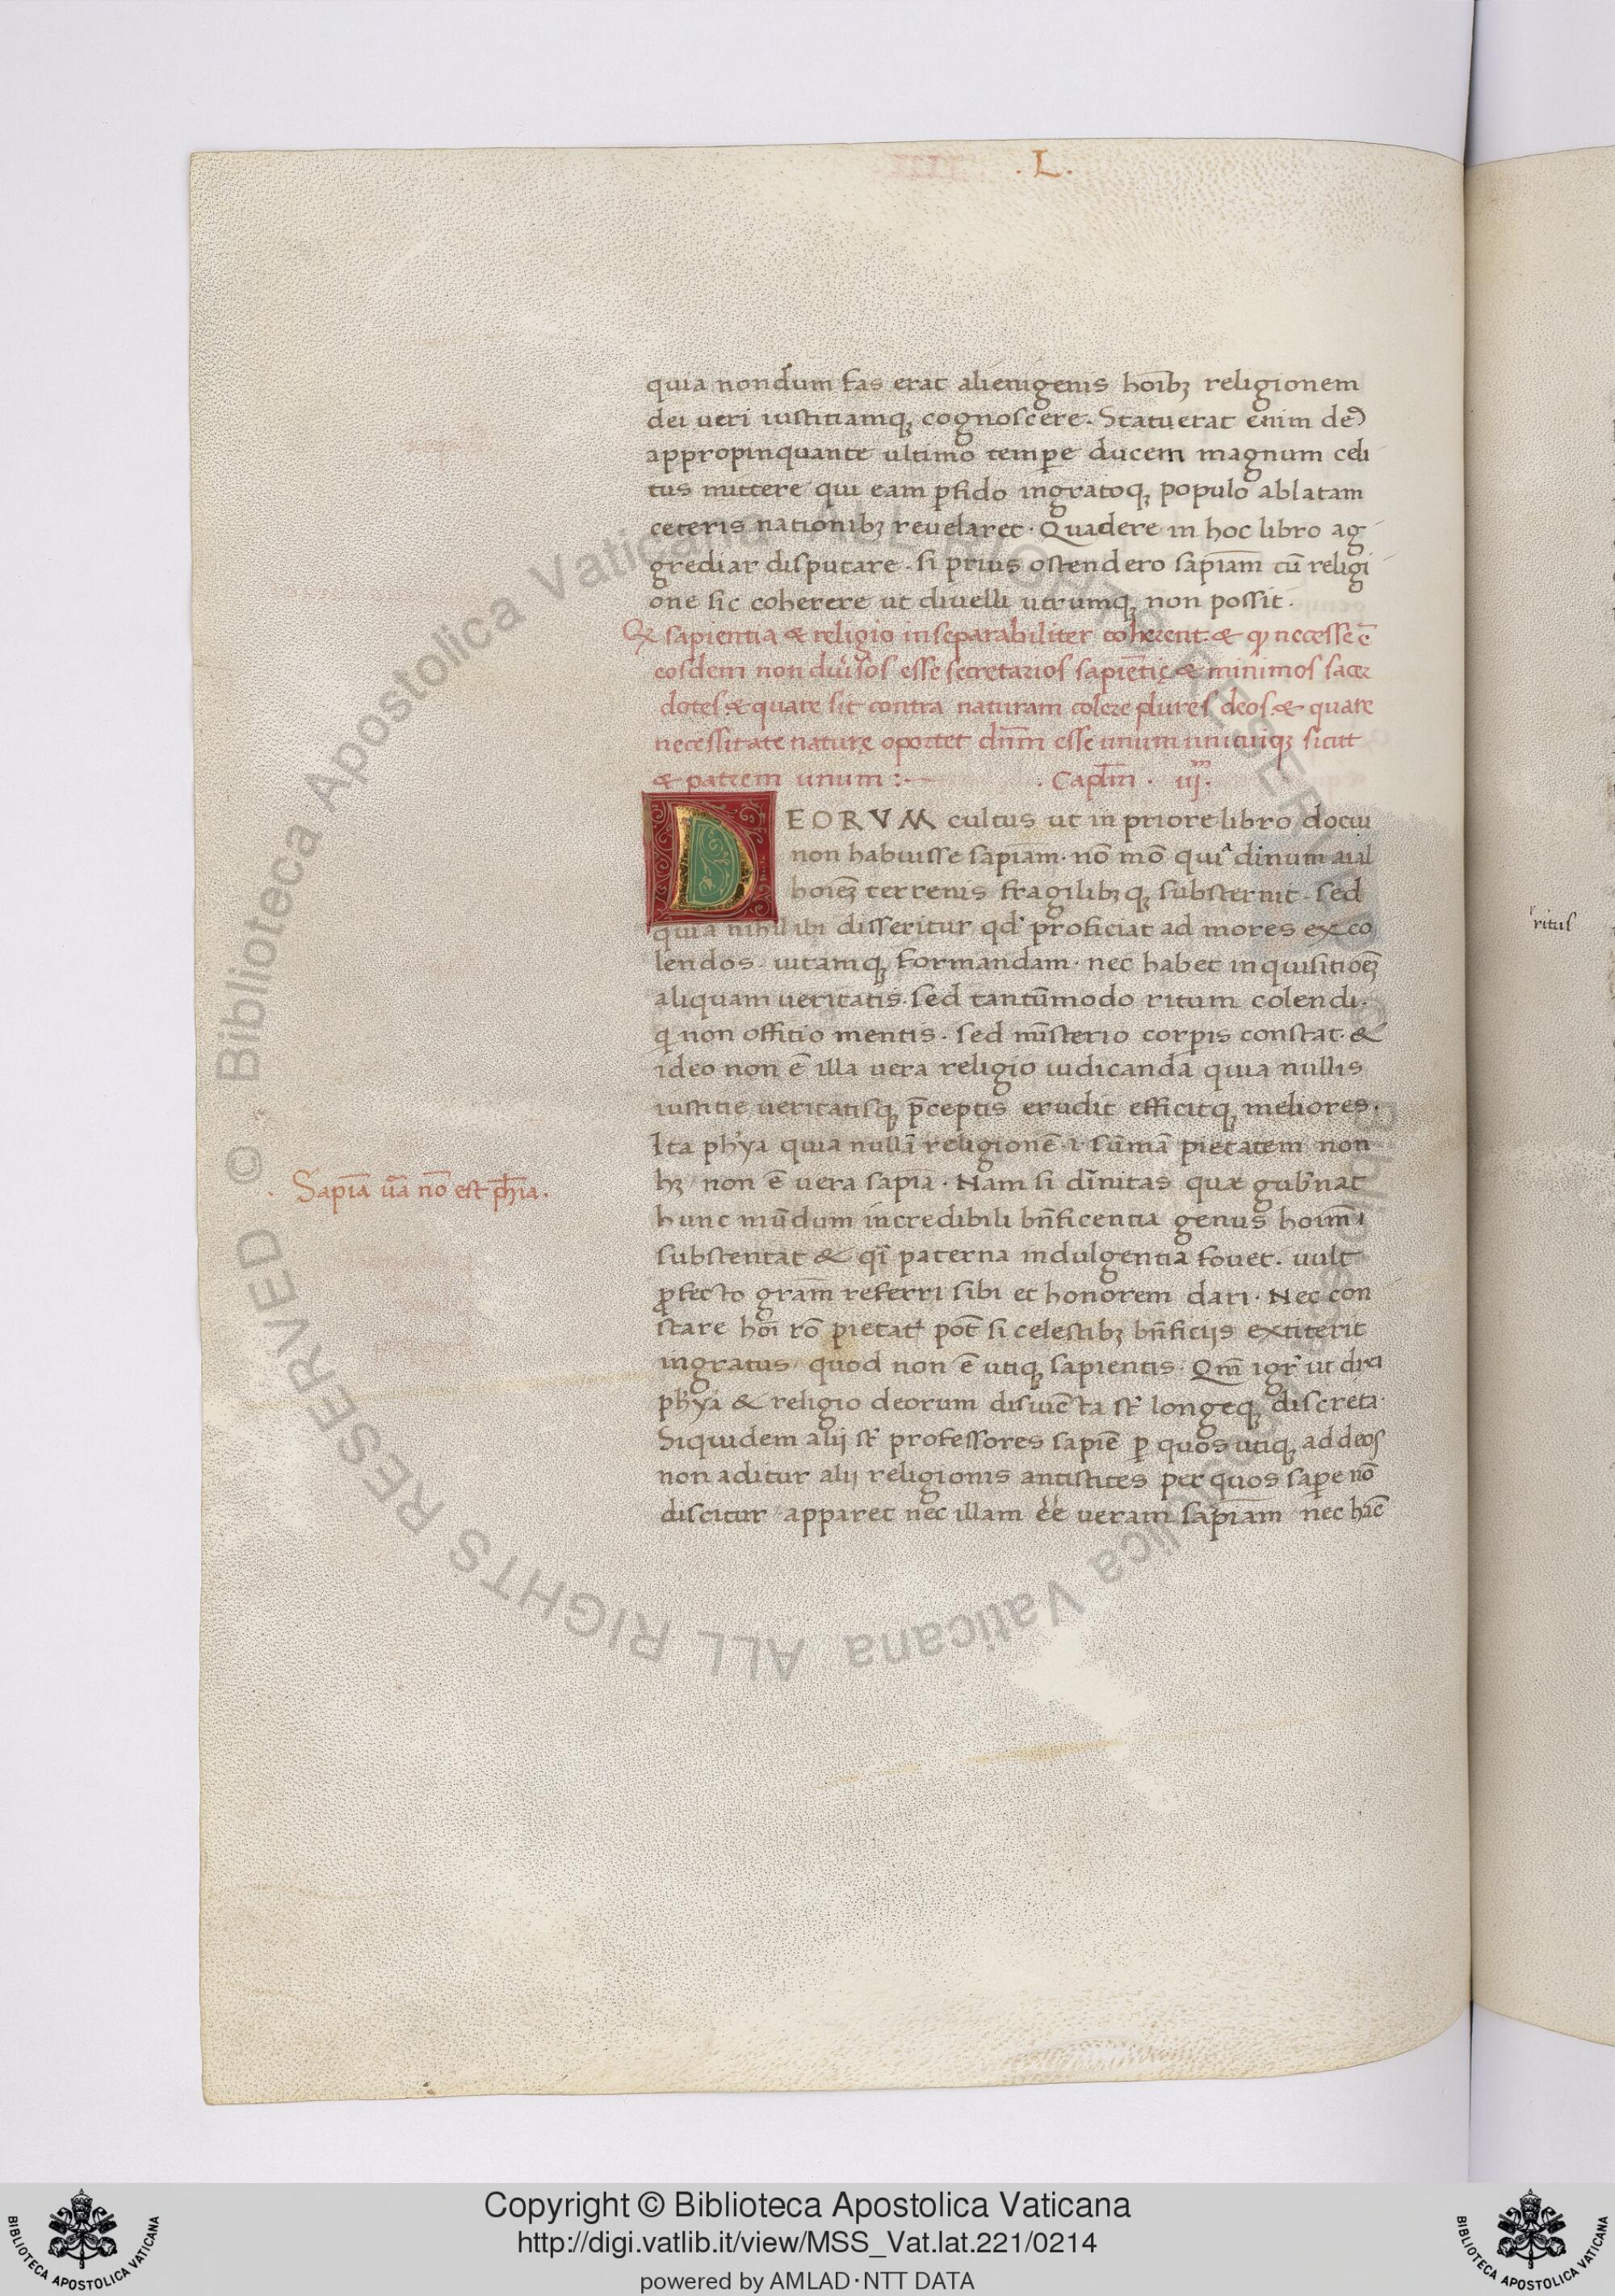 . L .
quia nondum fas erat alienigenis hoībꝫ religionem
dei veri iustitiamqꝫ cognoscere. Statuerat enim deꝰ
appropinquante ultimo temꝑe ducem magnum celi
tus mittere qui eam ꝑfido ingratoqꝫ populo ablatam
ceteris nationibꝫ revelaret. Quadere in hoc libro ag
grediar disputare. si prius ostendero sapiam̄ cū religi
one sic coherere ut divelli utrumqꝫ non possit.
sapientia & religio inseparabiliter coherent. & ꝙ necesse ē
eosdem non diūsos esse secretarios sapientię & minimos sacer
dotes. & quare sit contra naturam colere plures deos. & quare
necessitate naturę oportet dnm̄ esse unum unicuiqꝫ sicut
& patrem unum :- . Capłm . iij.
DEORVM cultus ut in priore libro docui
non habuisse sapiam̄. nō mō quia diuinum aial
hoieꝫ terrenis fragilibꝫqꝫ substernit. sed
quia nihil ibi disseritur qd' proficiat ad mores exco
lendos. vitamqꝫ formandam. nec habet inquisitioeꝫ
aliquam veritatis. sed tantūmodo ritum colendi.
q non offitio mentis. sed mīsterio corꝑis constat. &
ideo non ē illa vera religio iudicanda quia nullis
iustitie veritatisqꝫ p̄ceptis erudit efficitqꝫ meliores.
Ita phya quia nullā religionē .i. sūmā pietatem non
hꝫ non ē vera sapīa. Nam si diīnitas quæ gub'nat
hunc mūdum incredibili bn̄ficentia genus hoīm
substentat & qī paterna indulgentia fovet. vult
ꝓfecto gram̄ referri sibi et honorem dari. Nec con
stare hoī rō pietat' pōt si celestibꝫ bn̄ficijs extiterit
ingratus quod non ē utiqꝫ sapientis. Qm̄ igr' ut dixi
phya & religio deorum disiūcta st' longeqꝫ discreta.
Siquidem alij st' professores sapīe ꝑ quos utiqꝫ ad deos
non aditur alij religionis antistites per quos saꝑe nō
discitur apparet nec illam eē veram sapiam̄ nec hāc
. Sapīa uā nō est phīa.
ritus
Copyright © Biblioteca Apostolica Vaticana
http://digi.vatlib.it/view/MSS_Vat.lat.221/0214
powered by AMLAD·NTT DATA
BIBLIOTECA APOSTOLICA VATICANA
BIBLIOTECA APOSTOLICA VATICANA
© Biblioteca Apostolica Vaticana ALL RIGHTS RESERVED